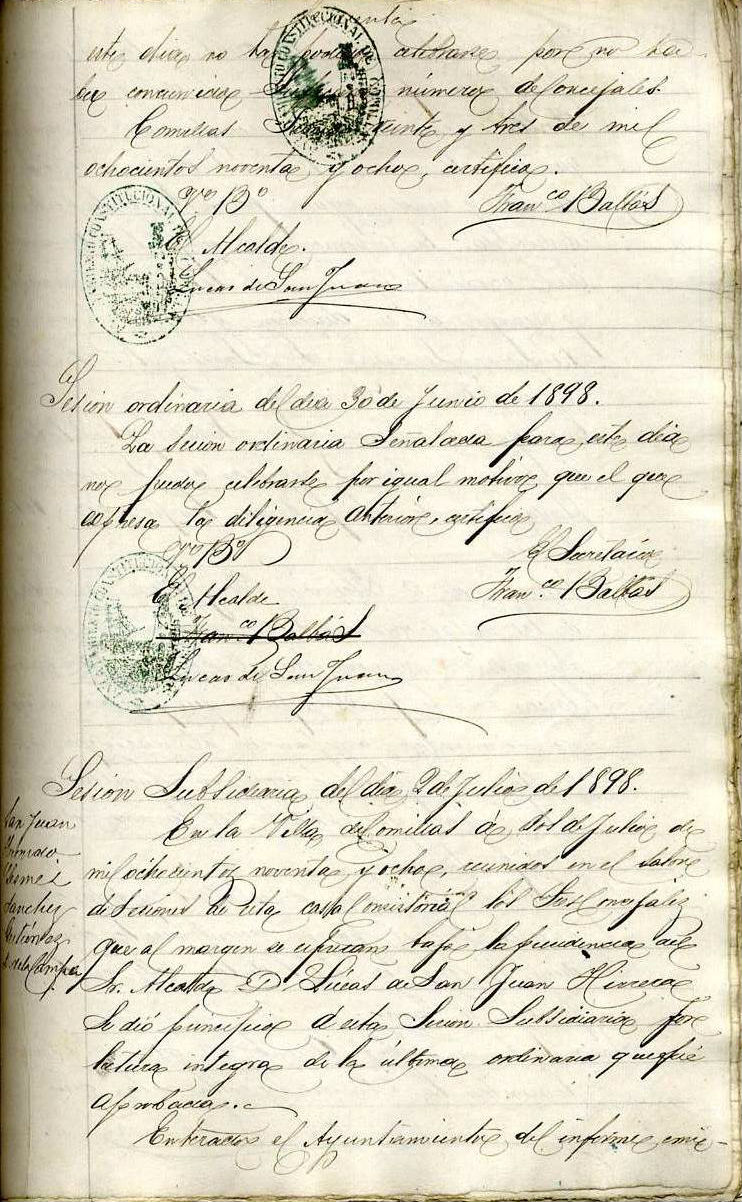 este dia no ha podido celebrarse por no ha-
ber concurrido número de Concejales.
Comillas veinte y tres de mil
ochocientos noventa y ocho, certifico.
Vº Bº
Franco Balbás
El Alcalde.
Lucas de San Juan
AYUNTAMIENTO CONSTITUCIONAL DE COMILLAS
Sesion ordinaria del dia 30 de Junio de 1898.
La sesion ordinaria señalada para este dia
no puede celebrarse por igual motivo que el que
espresa la diligencia anterior, certifico
Vº Bº
El Secretario
El Alcalde
Franco Balbás
Franco Balbás
Lucas de San Juan
Sesion Subsidiaria del dia 2 de Julio de 1898.
San Juan
Sanchez
Gutierrez
de la Campa
En la Villa de Comillas á dos de Julio de
mil ochocientos noventa y ocho, reunidos en el salon
de sesiones de esta casa Consistorial los Sres Concejales
que al margen se espresan bajo la presidencia del
Sr. Alcalde D. Lucas de San Juan Herrera
se dió principio á esta Sesion Subsidiaria por
lectura integra de la última ordinaria que fué
aprobada.
Enterado el Ayuntamiento del informe emi-